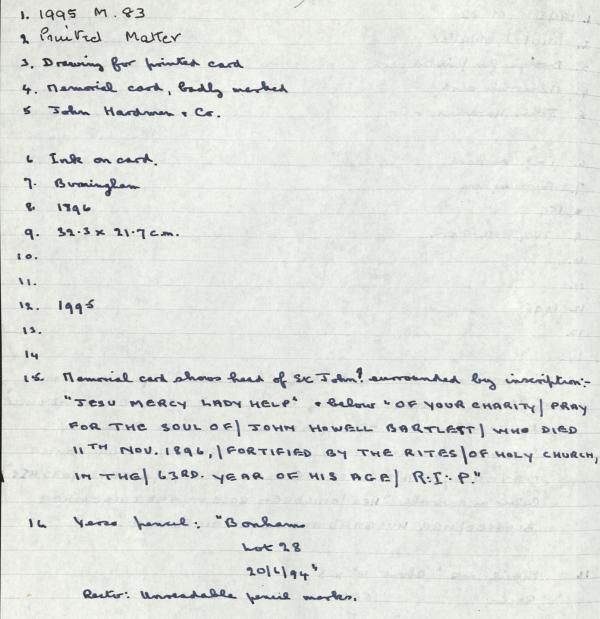 1. 1995 M. 83
2 Printed Matter
3. Drawing for printed card
4. Memorial card, badly marked
5 John Hardman & Co.
6 Ink on card.
7. Birmingham
8. 1896
9. 32.3 x 21.7 cm.
10.
11.
12. 1995
13.
14
15. Memorial card shows head of St John? surrounded by inscription:-
"JESU MERCY LADY HELP" & below "OF YOUR CHARITY/ PRAY
FOR THE SOUL OF/ JOHN HOWELL BARTLETT/ WHO DIED
11TH NOV. 1896,/ FORTIFIED BY THE RITES/ OF HOLY CHURCH,
IN THE/ 63RD. YEAR OF HIS AGE/ R.I.P."
16 Verso pencil: "Bonhams
Lot 28
20/6/94"
Recto: Unreadable pencil marks.